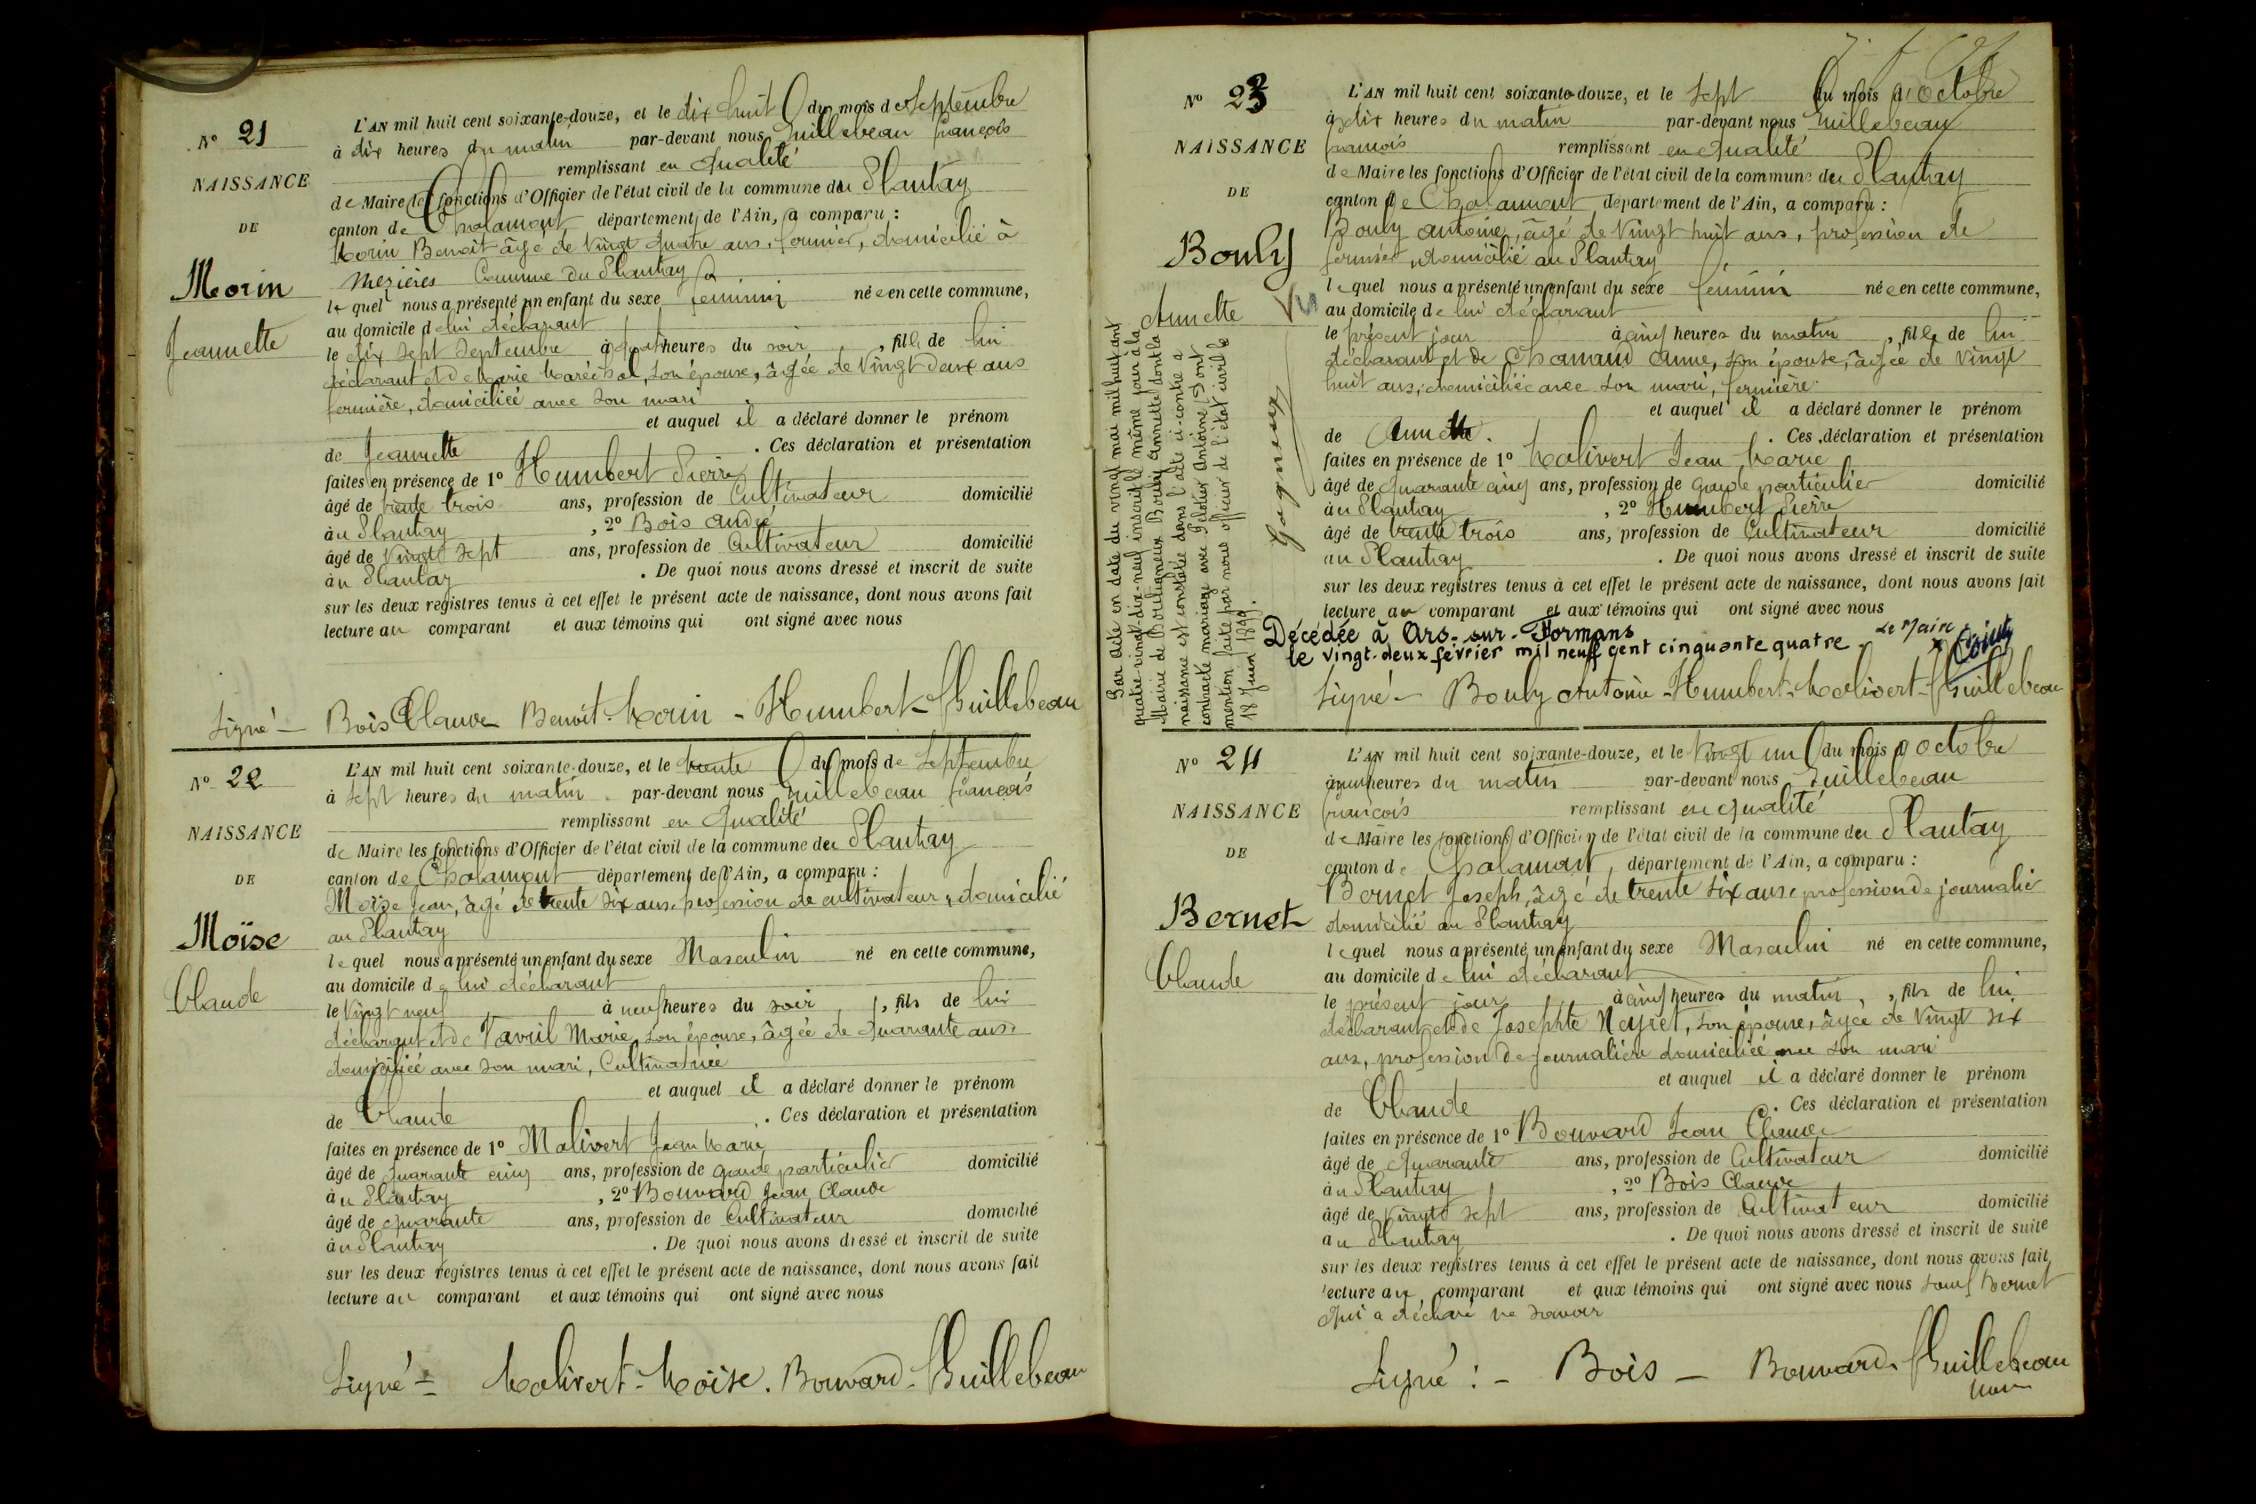 Nº 21
NAISSANCE
DE
Morin
Jeannette
L'AN mil huit cent soixante-douze, et le dix huit du mois de Septembre
à dix heures du matin par-devant nous Guillebeau françois
remplissant en qualité
de Maire les fonctions d'Officier de l'état civil de la commune du Plantay
canton de Chalamont département de l'Ain, a comparu :
Morin Benoit âgé de vingt quatre ans, fermier, domicilié à
Mezières Commune du Plantay
lequel nous a présenté un enfant du sexe féminin née en cette commune,
au domicile de lui déclarant
le dix sept Septembre à quatre heures du soir , fille de lui
déclarant et de Marie Maréchal, son épouse, âgée de vingt deux ans
fermière, domiciliée avec son mari
et auquel il a déclaré donner le prénom
de Jeannette . Ces déclaration et présentation
faites en présence de 1º Humbert Pierre
âgé de trente trois ans, profession de Cultivateur domicilié
au Plantay , 2º Bois André
âgé de vingt sept ans, profession de Cultivateur domicilié
au Plantay . De quoi nous avons dressé et inscrit de suite
sur les deux registres tenus à cet effet le présent acte de naissance, dont nous avons fait
lecture au comparant et aux témoins qui ont signé avec nous
Signé — Bois Claude Benoit Morin - Humbert - Guillebeau
Nº 22
NAISSANCE
DE
Moïse
Claude
L'AN mil huit cent soixante-douze, et le trente du mois de Septembre
à sept heures du matin par-devant nous Guillebeau françois
remplissant en qualité
de Maire les fonctions d'Officier de l'état civil de la commune du Plantay
canton de Chalamont département de l'Ain, a comparu :
Moïse Jean, âgé de trente six ans, profession de cultivateur, domicilié
au Plantay
lequel nous a présenté un enfant du sexe Masculin né en cette commune,
au domicile de lui déclarant
le vingt neuf à neuf heures du soir , fils de lui
déclarant et de Tavril Marie, son épouse, âgée de quarante ans
domiciliée avec son mari, Cultivatrice
et auquel il a déclaré donner le prénom
de Claude . Ces déclaration et présentation
faites en présence de 1º Malivert Jean Marie
âgé de quarante cinq ans, profession de garde particulier domicilié
au Plantay , 2º Bouvard Jean Claude
âgé de quarante ans, profession de Cultivateur domicilié
au Plantay . De quoi nous avons dressé et inscrit de suite
sur les deux registres tenus à cet effet le présent acte de naissance, dont nous avons fait
lecture au comparant et aux témoins qui ont signé avec nous
Signé = Malivert - Moïse. Bouvard - Guillebeau
Nº 23
NAISSANCE
DE
Bouly
Annette
Vu
L'AN mil huit cent soixante-douze, et le sept du mois d'Octobre
à dix heures du matin par-devant nous Guillebeau
françois remplissant en qualité
de Maire les fonctions d'Officier de l'état civil de la commune du Plantay
canton de Chalamont département de l'Ain, a comparu :
Bouly antoine, âgé de vingt huit ans, profession de
fermier, domicilié au Plantay
lequel nous a présenté un enfant du sexe féminin née en cette commune,
au domicile de lui déclarant
le présent jour à cinq heures du matin , fille de lui
déclarant et de Chanaud anne, son épouse, âgée de vingt
huit ans, domiciliée avec son mari, fermière
et auquel il a déclaré donner le prénom
de Annette. . Ces déclaration et présentation
faites en présence de 1º Malivert Jean Marie
âgé de quarante cinq ans, profession de garde particulier domicilié
au Plantay , 2º Humbert Pierre
âgé de trente trois ans, profession de Cultivateur domicilié
au Plantay . De quoi nous avons dressé et inscrit de suite
sur les deux registres tenus à cet effet le présent acte de naissance, dont nous avons fait
lecture au comparant et aux témoins qui ont signé avec nous
Décédée à Ars-sur-Formans
le vingt-deux février mil neuf cent cinquante quatre. Le Maire
Signé — Bouly Antoine - Humbert - Malivert - Guillebeau
Par acte en date du vingt mai mil huit cent
quatre-vingt-dix-neuf inscrit le même jour à la
Mairie de Bouligneux Bouly Annette dont la
naissance est constatée dans l'acte ci-contre a
contracté mariage avec Pelotier Antoine. Dont
mention faite par nous officier de l'état civil le
18 Juin 1899.
Gagneux
Nº 24
NAISSANCE
DE
Bernet
Claude
L'AN mil huit cent soixante-douze, et le vingt un du mois d'octobre
à heures du matin par-devant nous Guillebeau
françois remplissant en qualité
de Maire les fonctions d'Officier de l'état civil de la commune du Plantay
canton de Chalamont, département de l'Ain, a comparu :
Bernet Joseph, âgé de trente six ans, profession de journalier
domicilié au Plantay
lequel nous a présenté un enfant du sexe Masculin né en cette commune,
au domicile de lui déclarant
le présent jour à cinq heures du matin , fils de lui
déclarant et de Josephte Neyret, son épouse, âgée de vingt six
ans, profession de journalière domiciliée avec son mari
et auquel il a déclaré donner le prénom
de Claude . Ces déclaration et présentation
faites en présence de 1º Bouvard Jean Claude
âgé de quarante ans, profession de Cultivateur domicilié
au Plantay , 2º Bois Claude
âgé de vingt sept ans, profession de Cultivateur domicilié
au Plantay . De quoi nous avons dressé et inscrit de suite
sur les deux registres tenus à cet effet le présent acte de naissance, dont nous avons fait
lecture au comparant et aux témoins qui ont signé avec nous sauf Bernet
qui a déclaré ne savoir
Signé : - Bois - Bouvard - Guillebeau